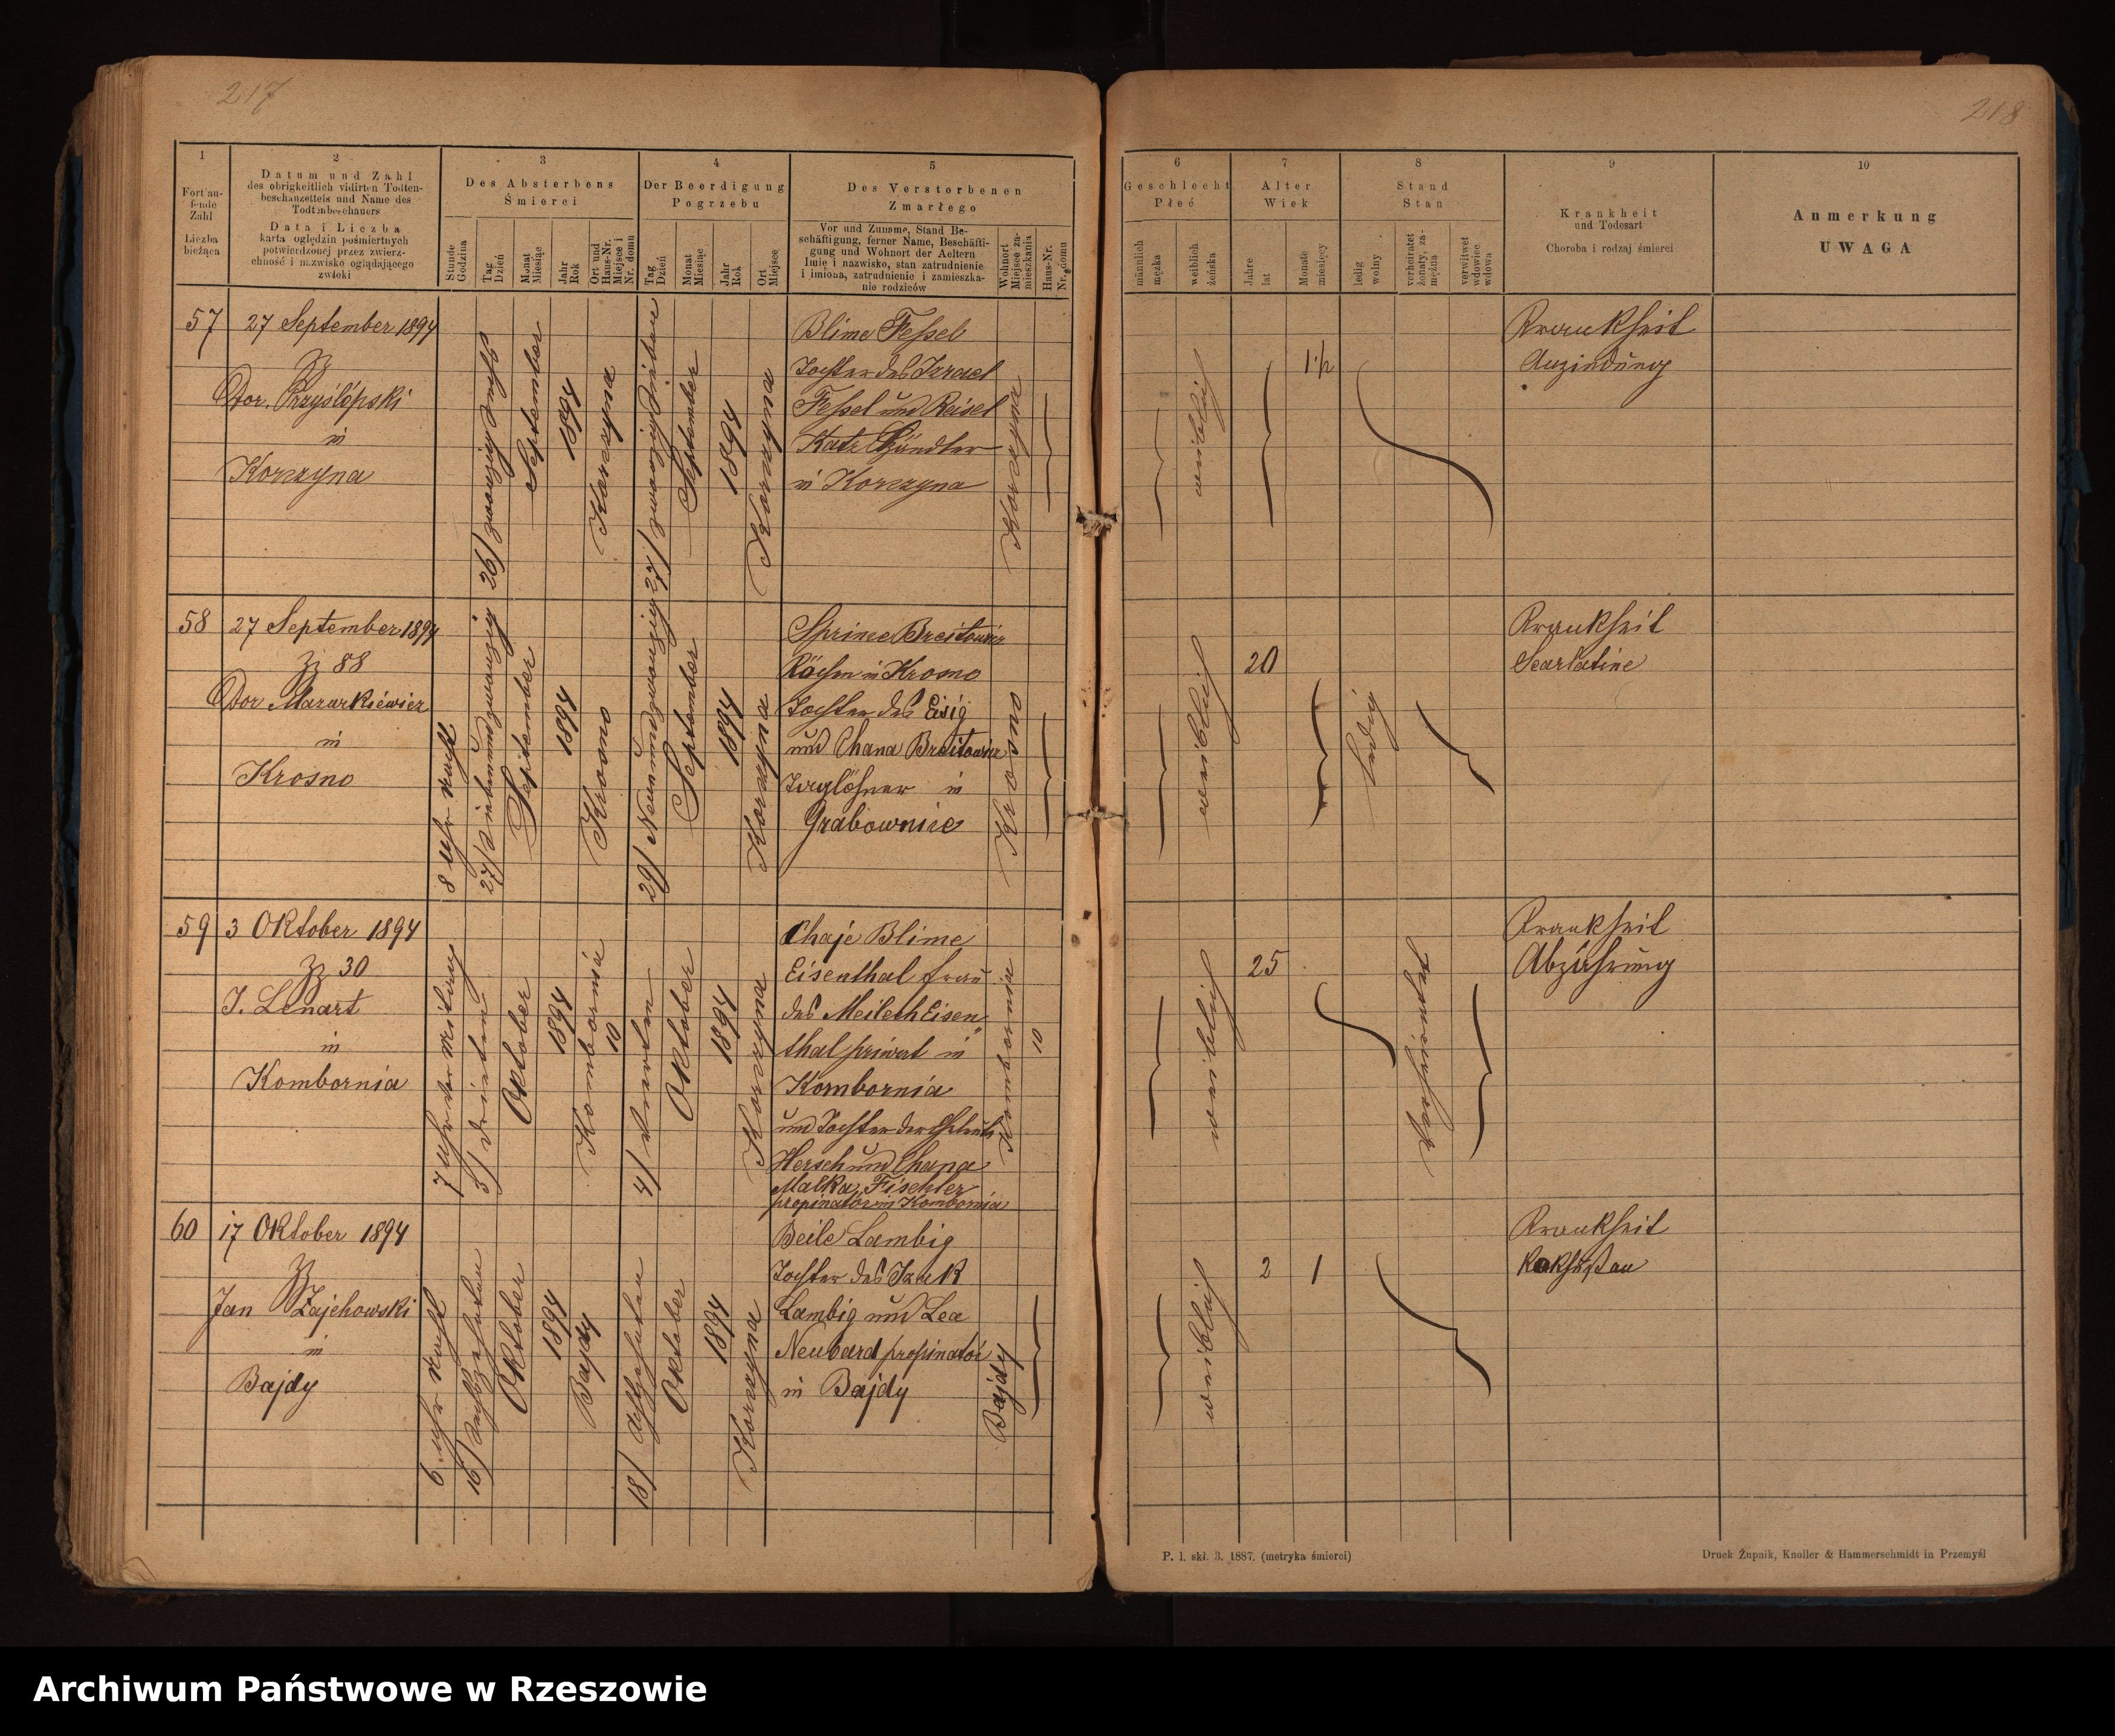 217
218
1
Fortlau-
fende
Zahl
Liczba
bieżąca
2
Datum und Zahl
des obrigkeitlich vidirten Todten-
beschauzettels und Name des
Todtenbeschauers
Data i Liczba
karta oględzin pośmiertnych
potwierdzonej przez zwierz-
chność i nazwisko oglądającego
zwłoki
3
Des Absterbens
Śmierci
Stunde
Godzina
Tag
Dzień
Monat
Miesiąc
Jahr
Rok
Ort und
Haus-Nr.
Miejsce i
Nr. domu
4
Der Beerdigung
Pogrzebu
Tag
Dzień
Monat
Miesiąc
Jahr
Rok
Ort
Miejsce
5
Des Verstorbenen
Zmarłego
Vor und Zuname, Stand Be-
schäftigung, ferner Name, Beschäfti-
gung und Wohnort der Aeltern
Imię i nazwisko, stan zatrudnienie
i imiona, zatrudnienie i zamieszka-
nie rodziców
Wohnort
Miejsce za-
mieszkania
Haus-Nr.
Nr. domu
6
Geschlecht
Płeć
männlich
męzka
weiblich
żeńska
7
Alter
Wiek
Jahre
lat
Monate
miesięcy
8
Stand
Stan
ledig
wolny
verheiratet
żonaty, za-
mężna
verwitwet
wdowiec
wdowa
9
Krankheit
und Todesart
Choroba i rodzaj śmierci
10
Anmerkung
UWAGA
57
27 September 1894
Zz
Dor. Przyslópski
in
Korczyna
26) zwanzig sechs
September
1894
Korczyna
27) zwanzig sieben
September
1894
Korczyna
Blime Fessel
Tochter des Izrael
Fessel und Reisel
Katz Händler
in Korczyna
Korczyna
weiblich
1½
Krankheit
Anzindung
58
27 September 1894
Zz 88
Dor Mazurkiéwicz
in
Krosno
8 Uhr Nacht
27) Siebenundzwanzig
September
1894
Krosno
29) Neunundzwanzig
September
1894
Korczyna
Sprince Breitowicz
Köchin in Krosno
Tochter des Eisig
und Chana Breitowicz
Taglöhner in
Grabownice
Krosno
weiblich
20
ledig
Krankheit
Scarlatine
59
3 Oktober 1894
Zz 30
J. Lenart
in
Kombornia
7 Uhr der Mittag
3) dritten
Oktober
1894
Kombornia
10
4) vierten
Oktober
1894
Korczyna
Chaje Blime
Eisenthal frau
des Meilech Eisen
thal priwat in
Kombornia
und Tochter der Eheleute
Hersch und Chana
Malka Fischler
propinator in Kombornia
Kombornia
10
weiblich
25
verheiratet
Krankheit
Abzährung
60
17 Oktober 1894
Zz
Jan Zajchowski
in
Bajdy
6 Uhr Nacht
16) Sechszehnten
Oktober
1894
Bajdy
18) Achtzehnten
Oktober
1894
Korczyna
Beile Lambig
Tochter des Izaek
Lambig und Lea
Neubard propinator
in Bajdy
Bajdy
weiblich
2
1
Krankheit
Kokhustau
P. l. skł. 3. 1887. (metryka śmierci)
Druck Żupnik, Knoller & Hammerschmidt in Przemyśl
Archiwum Państwowe w Rzeszowie